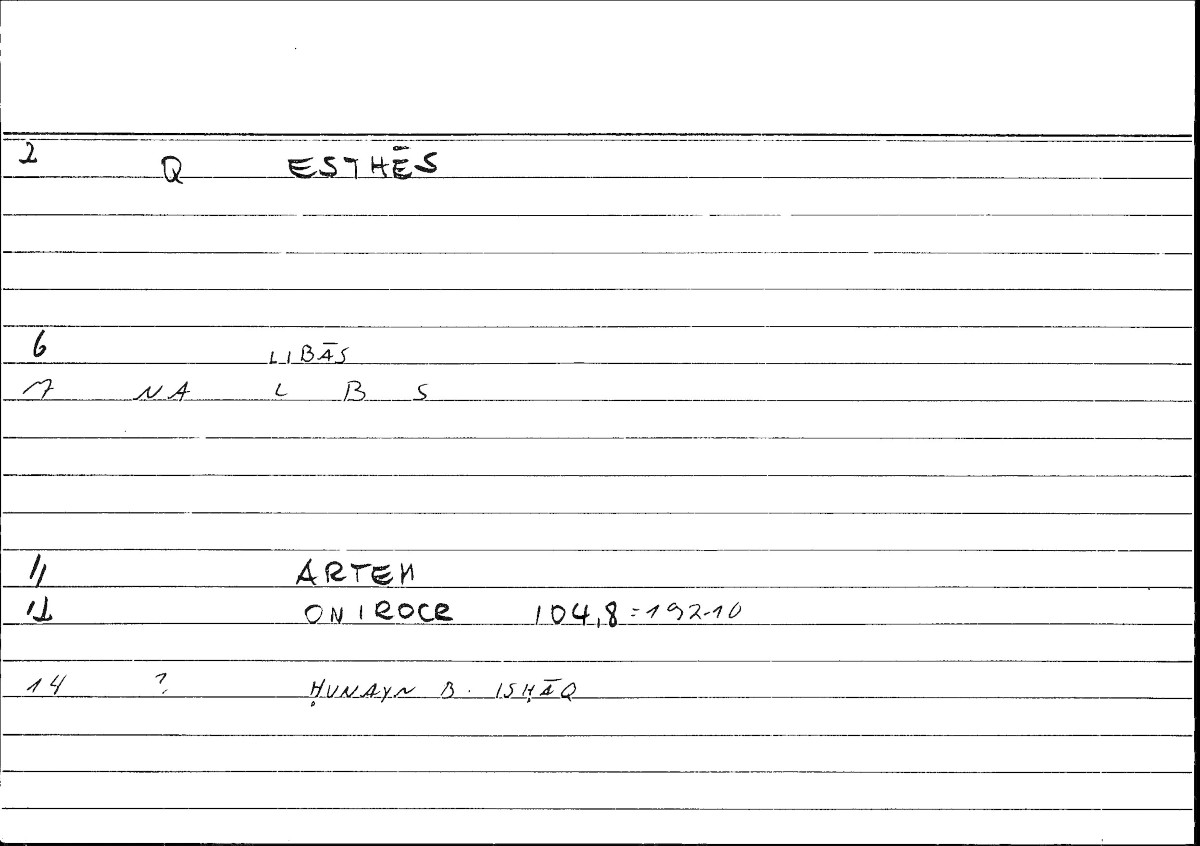 2 Q ESTHĒS
6 LIBĀS
7 NA L B S
11 ARTEM
12 ONIROCR 104,8 = 192-10
14 ? ḤUNAYN B. ISḤĀQ